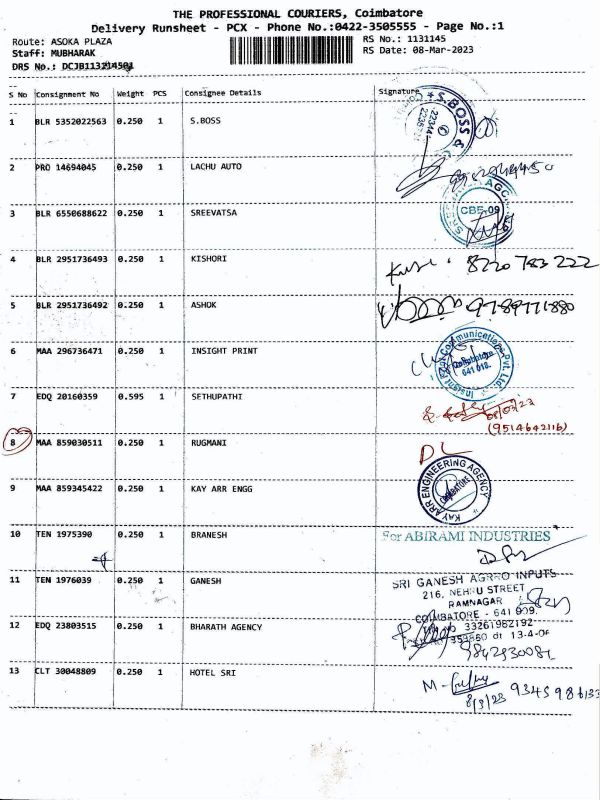 THE PROFESSIONAL COURIERS, Coimbatore
Delivery Runsheet - PCX - Phone No.:0422-3505555 - Page No.:1
Route: ASOKA PLAZA
RS No.: 1131145
Staff: MUBHARAK
RS Date: 08-Mar-2023
DRS No.: DCJB113214501
S No Consignment No Weight PCS Consignee Details Signature
1 BLR 5352022563 0.250 1 S.BOSS
S.BOSS &
2 PRO 14694045 0.250 1 LACHU AUTO
3 BLR 6550688622 0.250 1 SREEVATSA
CBE-09
4 BLR 2951736493 0.250 1 KISHORI 8220 783 222
5 BLR 2951736492 0.250 1 ASHOK 9789771880
6 MAA 296736471 0.250 1 INSIGHT PRINT
Insight Print Communications Pvt. Ltd.
Coimbatore
641 018.
7 EDQ 20160359 0.595 1 SETHUPATHI
08/03/23
(9514642116)
8 MAA 859030511 0.250 1 RUGMANI DL
9 MAA 859345422 0.250 1 KAY ARR ENGG
KAY ARR ENGINEERING AGENCY
COIMBATORE
10 TEN 1975390 0.250 1 BRANESH For ABIRAMI INDUSTRIES
11 TEN 1976039 0.250 1 GANESH
SRI GANESH AGRRO INPUTS
216, NEHRU STREET
RAMNAGAR
COIMBATORE - 641 009.
33261982192
dt 13-4-06
12 EDQ 23803515 0.250 1 BHARATH AGENCY
13 CLT 30048809 0.250 1 HOTEL SRI
8/3/23